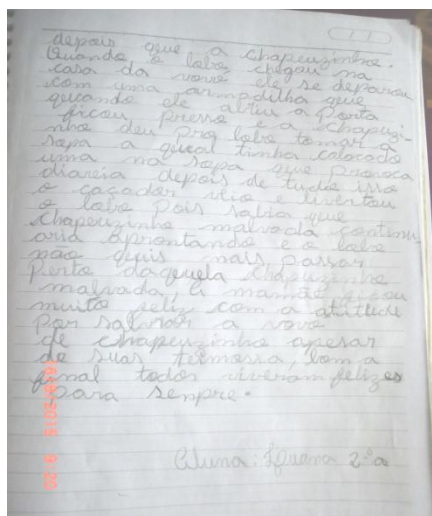 depois que a chapeuzinho.
Quando o lobo chegou na
casa da vovó ele se deparou
com uma armadilha que
quando ele abriu a porta
ficou preso e a chapuzi-
nho deu pro lobo tomar a
sopa a qual tinha colocado
uma na sopa que provoca
diareia depois de tudo isso
o caçador viu e livertou
o lobo pois sabia que
chapeuzinho malvada continu
aria aprontando e o lobo
não quis mais passar
perto daquela chapuzinho
malvada, a mamãe ficou
muito feliz com a atitude
por salvar a vovó
de chapeuzinho apesar
de suas termossa, bom a
final todos viveram felizes
para sempre.
Aluna: Luana 2ºa